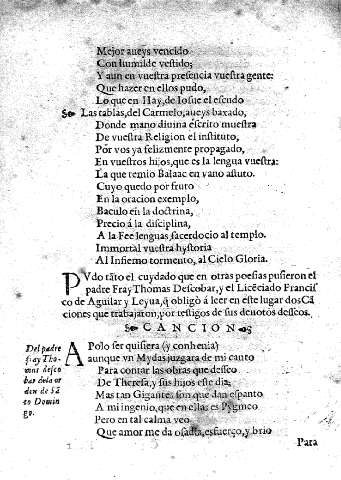 Mejor aueys vencido
Con humilde vestido;
Y aun en vuestra presencia vuestra gente:
Que hazer en ellos pudo,
Lo que en Hay, de Iosue el escudo
Las tablas, del Carmelo, aueys baxado,
Donde mano diuina escrito muestra
De vuestra Religion el instituto,
Por vos ya felizmente propagado,
En vuestros hijos, que es la lengua vuestra:
La que temio Balaac en vano astuto.
Cuyo quedo por fruto
En la oracion exemplo,
Baculo en la doctrina,
Precio á la disciplina,
A la Fee lenguas, sacerdocio al templo.
Immortal vuestra hystoria
Al Infierno tormento, al Cielo Gloria.
PVdo tãto el cuydado que en otras poesias pusieron el
padre Fray Thomas Descobar, y el Licẽciado Francis
co de Aguilar y Leyua, q̃ obligò à leer en este lugar dos Cã
ciones que trabajaron, por testigos de sus deuotós desseos.
CANCION
Del padre
fray Tho-
mas desco
bar dela or
den de Sã
to Domin
go.
APolo ser quisiera (y conuenia)
aunque vn Mydas juzgara de mi canto
Para contar las obras que desseo
De Theresa, y sus hijos este dia:
Mas tan Gigantes son que dan espanto
A mi ingenio, que en ellas es Pygmeo
Pero en tal calma veo
Que amor me da osadia, esfuerço, y brio
Para